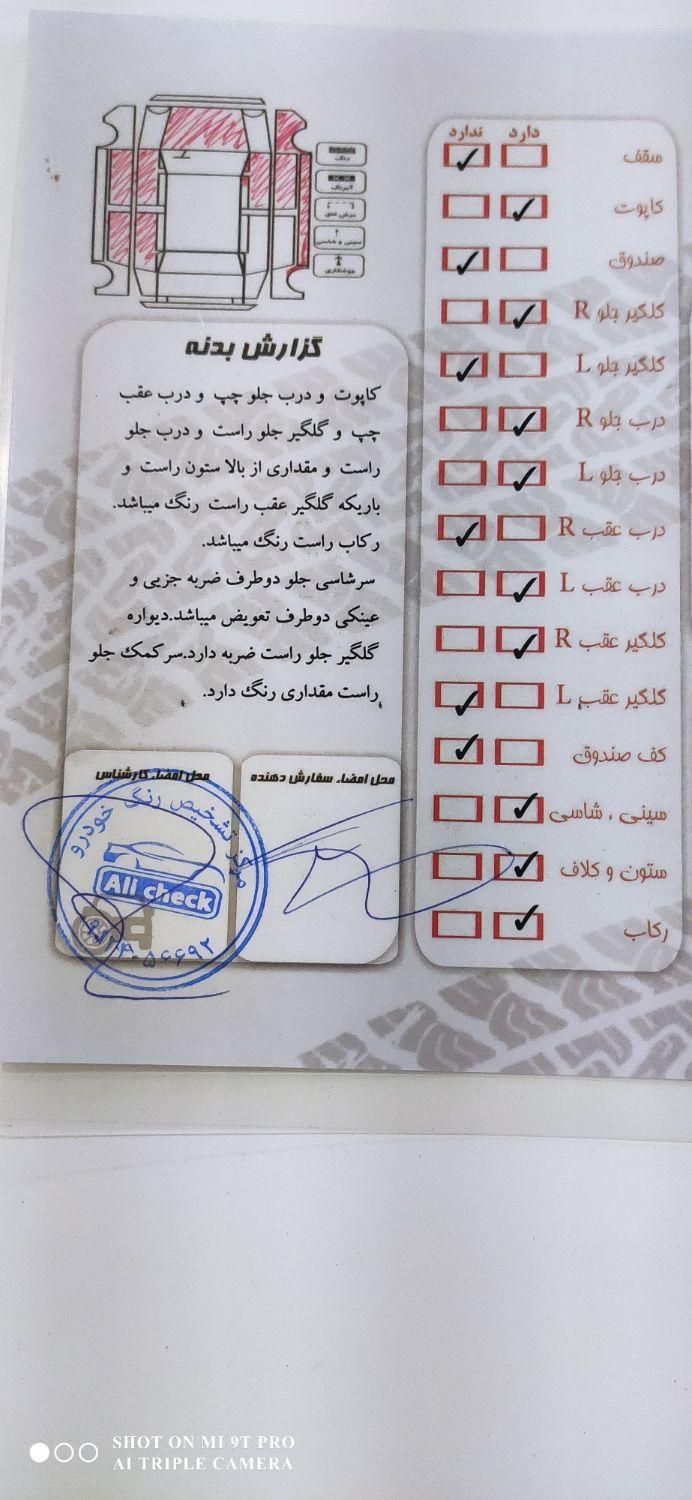 دارد ندارد
سقف
کاپوت
صندوق
گلگیر جلو R
گلگیر جلو L
درب جلو R
درب جلو L
درب عقب R
درب عقب L
گلگیر عقب R
گلگیر عقب L
کف صندوق
سینی ، شاسی
ستون و کلاف
رکاب
رنگ
سینی و شاسی
جوشکاری
گزارش بدنه
کاپوت و درب جلو چپ و درب عقب
چپ و گلگیر جلو راست و درب جلو
راست و مقداری از بالا ستون راست و
باریکه گلگیر عقب راست رنگ میباشد.
رکاب راست رنگ میباشد.
سرشاسی جلو دوطرف ضربه جزیی و
عینکی دوطرف تعویض میباشد.دیواره
گلگیر جلو راست ضربه دارد.سرکمک جلو
راست مقداری رنگ دارد.
محل امضاء سفارش دهنده
محل امضاء کارشناس
مرکز تشخیص رنگ خودرو
All check
SHOT ON MI 9T PRO
AI TRIPLE CAMERA